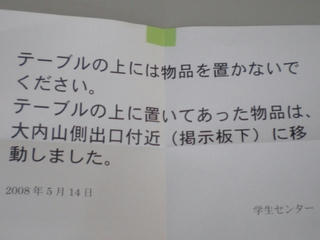 テーブルの上には物品を置かないで
ください。
テーブルの上に置いてあった物品は、
大内山側出口付近（掲示板下）に移
動しました。
2008 年 5 月 14 日
学生センター